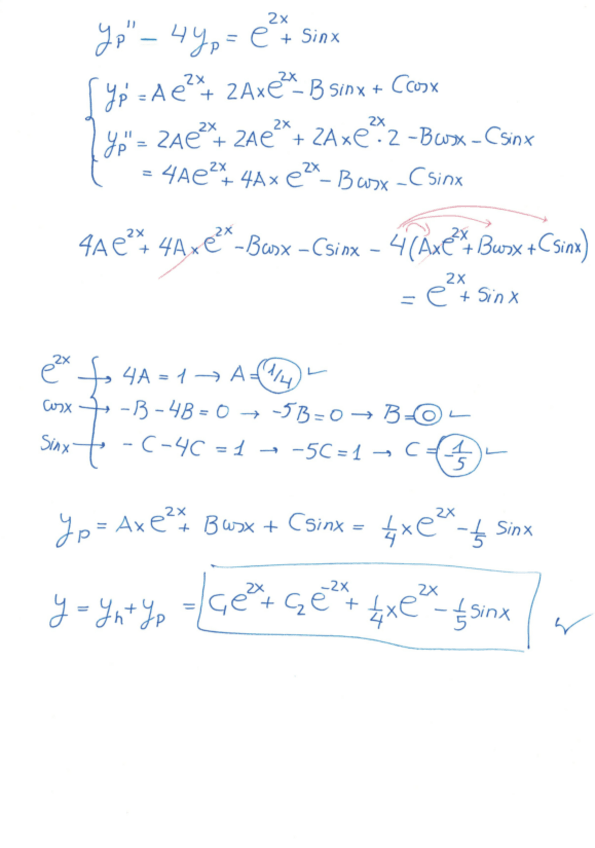 yp'' - 4yp = e^2x + sinx
yp' = Ae^2x + 2Axe^2x - Bsinx + Ccosx
yp'' = 2Ae^2x + 2Ae^2x + 2Axe^2x·2 - Bcosx - Csinx
= 4Ae^2x + 4Axe^2x - Bcosx - Csinx
4Ae^2x + 4Axe^2x - Bcosx - Csinx - 4(Axe^2x + Bcosx + Csinx)
= e^2x + sinx
e^2x → 4A = 1 → A = 1/4 ✓
cosx → -B - 4B = 0 → -5B = 0 → B = 0 ✓
sinx → -C - 4C = 1 → -5C = 1 → C = -1/5 ✓
yp = Axe^2x + Bcosx + Csinx = 1/4 xe^2x - 1/5 sinx
y = yh + yp = C1e^2x + C2e^-2x + 1/4 xe^2x - 1/5 sinx ✓